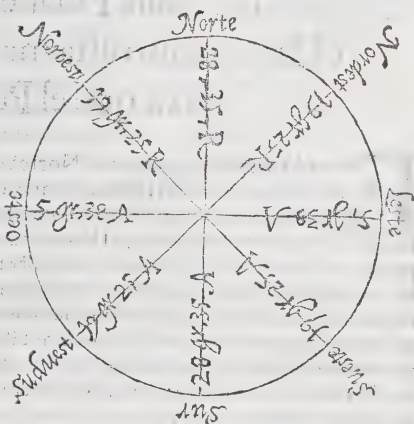 Norte
Nordest
Leste
Sueste
Sur
Suduest
Oeste
Noroest
35 R
19 gr 25 R
5 gr 38 A
19 gr 25 A
28 gr 35 A
19 gr 25 A
5 gr 38 A
19 gr 25 R